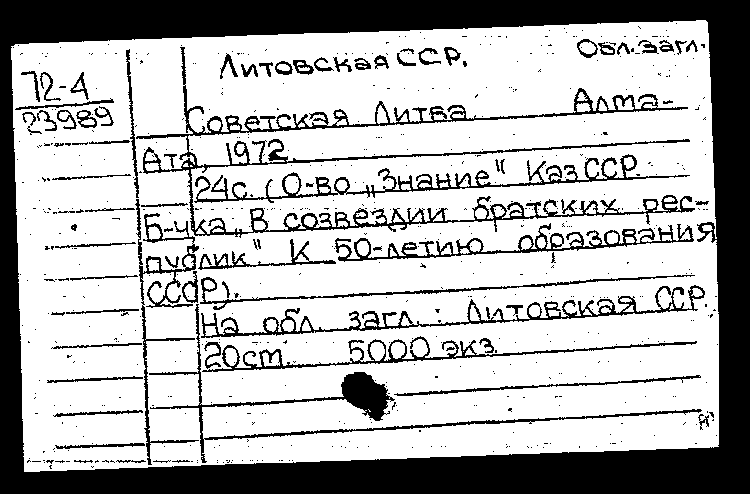 Литовская ССР. Обл. загл.
72-4
23989
Советская Литва. Алма-
Ата, 1972.
24с. (О-во „Знание" КазССР.
Б-чка „В созвездии братских рес-
публик". К 50-летию образования
СССР).
На обл. загл.: Литовская ССР.
20cm. 5000 экз.